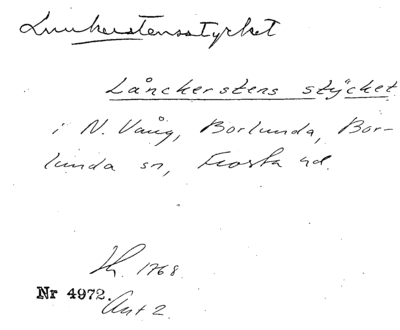 Lunkerstensstycket
Lånckerstens stÿcket
i N. Vång, Borlunda, Bor-
lunda sn, Frosta hd.
Kh. 1768
Nr 4972.
Akt 2